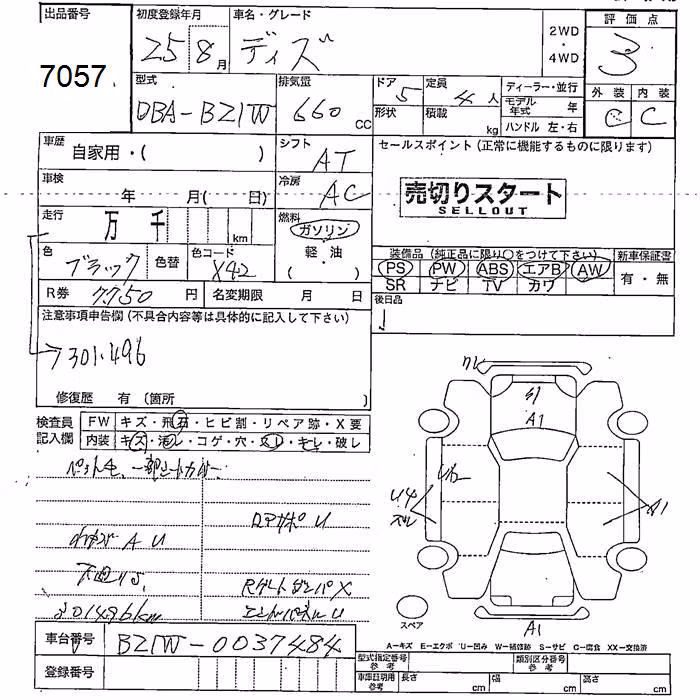 出品番号 初度登録年月 車名・グレード 評価点
7057 25 8月 ディズ 2WD・4WD 3
型式 排気量 ドア 定員 ディーラー・並行 外装 内装
DBA-BZ1W 660 CC 5 4人 モデル年式 年 C C
形状 積載 kg ハンドル 左・右
車歴 自家用・( ) シフト AT セールスポイント(正常に機能するものに限ります)
車検 年 月( 日) 冷房 AC 売切りスタート
SELLOUT
走行 万 千 km 燃料 ガソリン
軽・油
( )
色 ブラック 色替 色コード X42
装備品(純正品に限り○をつけて下さい) 新車保証書
PS PW ABS エアB AW 有・無
SR ナビ TV カワ
R券 7750円 名変期限 月 日 後日品
注意事項申告欄(不具合内容等は具体的に記入して下さい)
301.496
修復歴 有 (箇所 )
検査員記入欄 FW キズ・飛石・ヒビ割・リペア跡・X要
内装 キズ・汚レ・コゲ・穴・スレ・キレ・破レ
ロアサポ U
A U
Rゲートダンパ X
301496km
エンドパネル U
ワレ
A1
U2
U4
スレ
A1
A1
スペア
車台番号 BZ1W-0037484
A-キズ E-エクボ U-凹み W-補修跡 S-サビ C-腐食 XX-交換済
登録番号
型式指定番号 参考 類別区分番号 参考
車庫証明用 参考 長さ cm 幅 cm 高さ cm